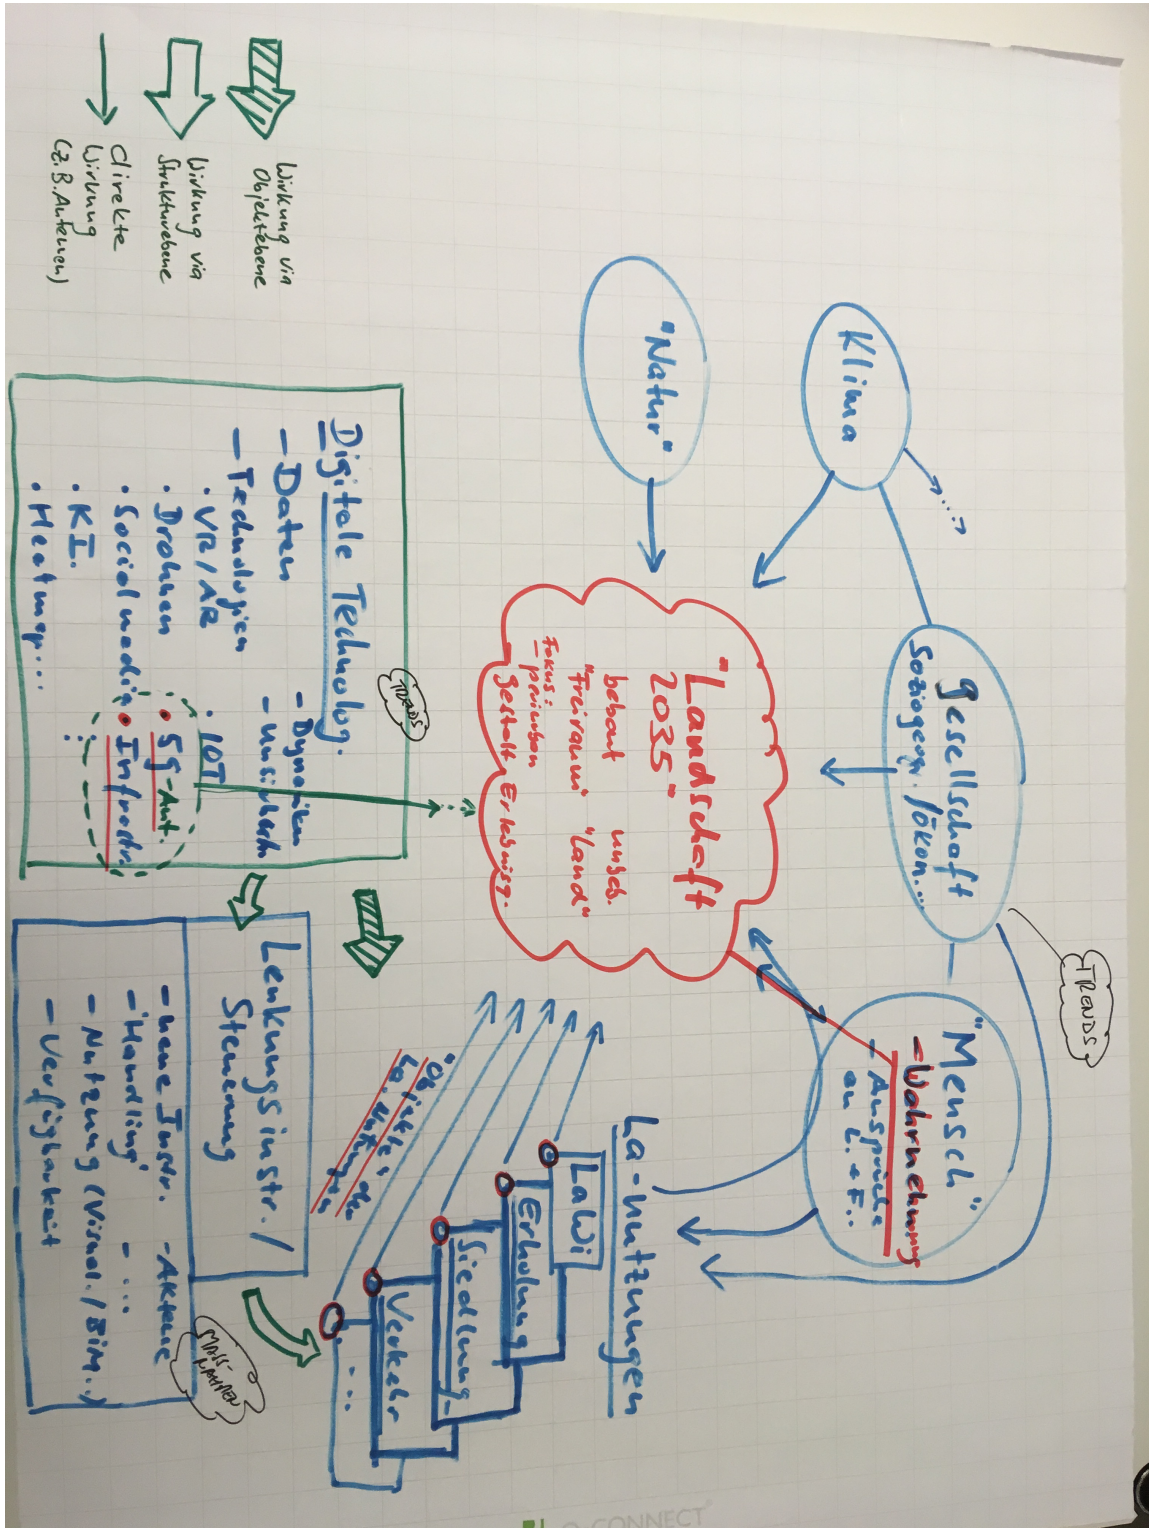 TRENDS
Klima
gesellschaft
Soziogeogr. /ökon....
"Mensch"
- Wahrnehmung
- Ansprüche
an L. + F..
"Natur"
"Landschaft
2035"
bebaut unbeb.
"Freiraum" "Land"
Fokus:
- primären
- gestalt. Erholungsg.
La-nutzungen
LaWi
Erholung
Siedlung
Verkehr
...
"Objekte" der
La.nutzungen
TRENDS
Digitale Technolog.
- Daten
- Dynamiken
- Technologien
- Unsicherh.
• VR/AR
• IOT
• Drohnen
• 5G-Ant.
• Social media
• Infrastr.
• KI.
• Heatmap...
Lenkungsinstr./
Steuerung
- neue Instr. - Akteure
- "Handling" - ...
- Nutzung (Visual./BIM..)
- Verfügbarkeit
MASS-
NAHMEN
Wirkung via
Objektebene
Wirkung via
Strukturebene
direkte
Wirkung
(z.B. Antennen)
CONNECT